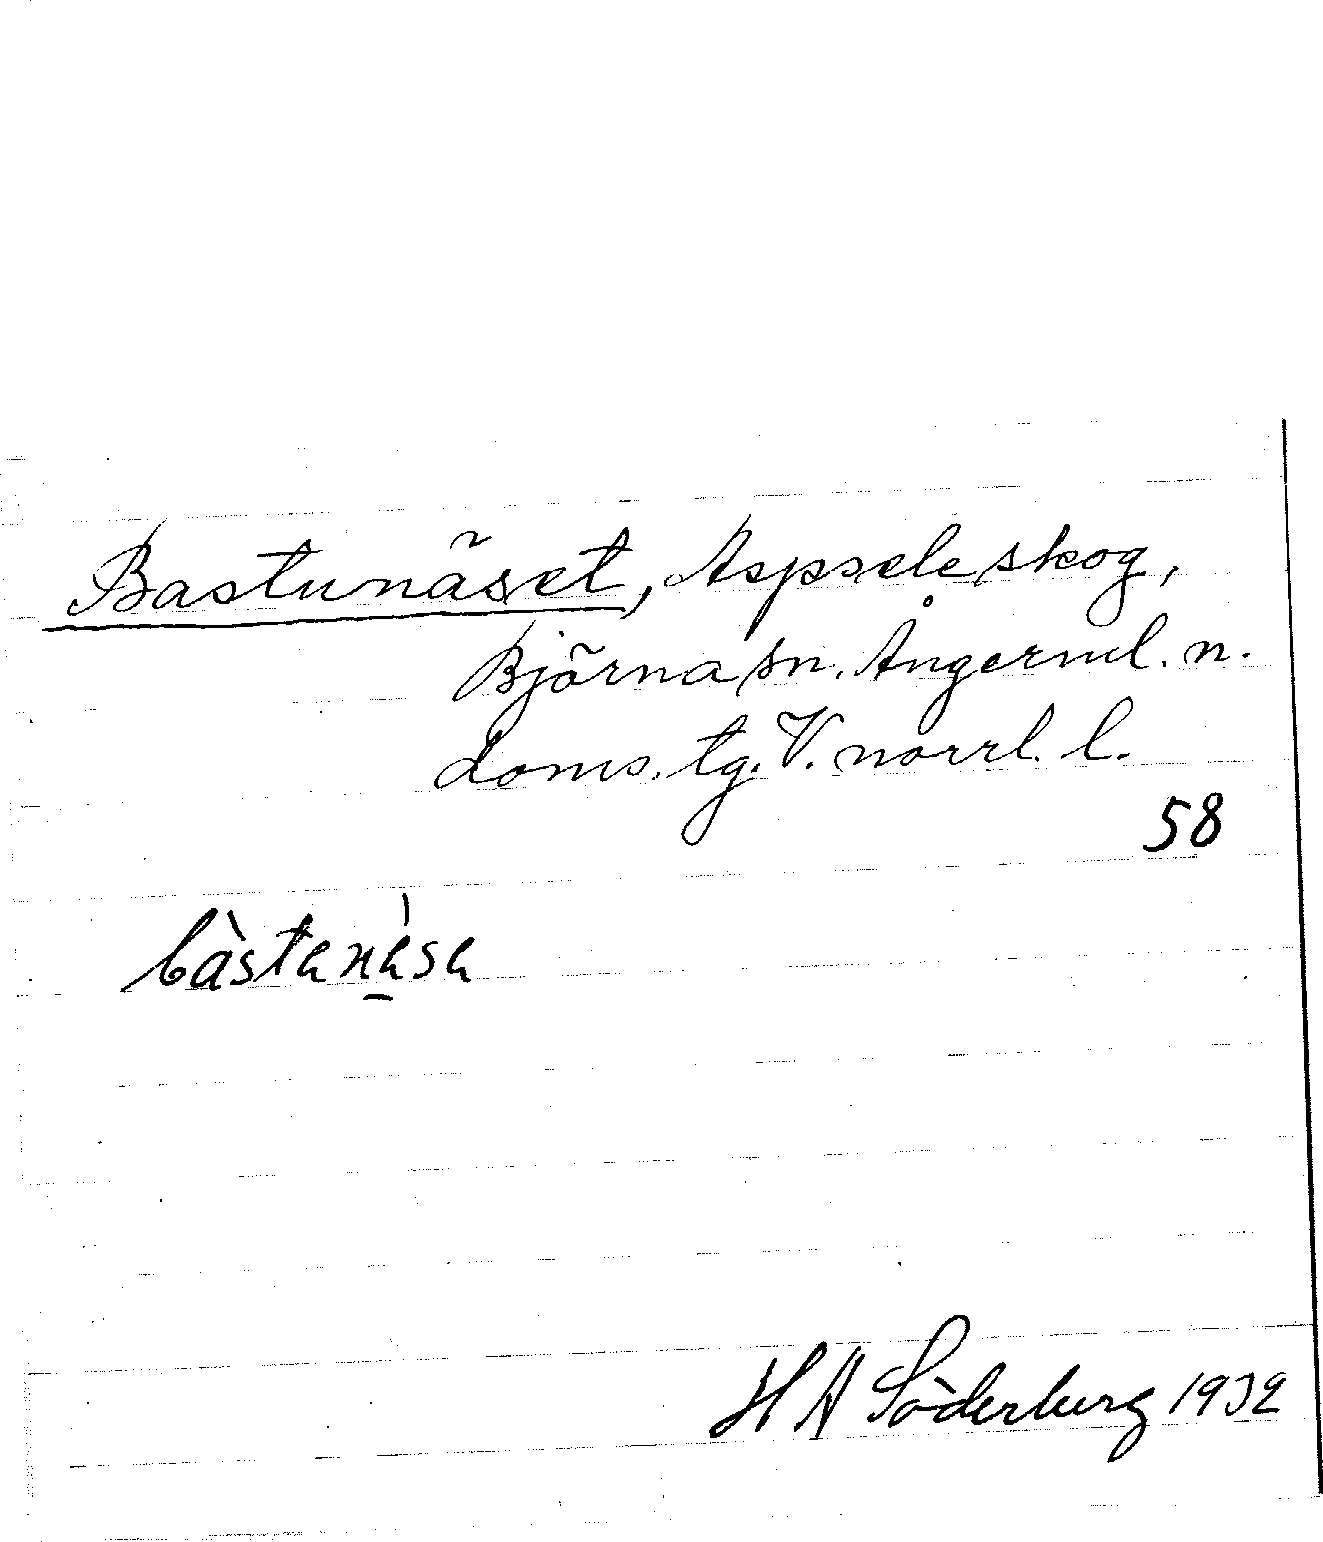 Bastunäset, Aspsele skog,
Björna sn. Ångerml. n.
doms. tg. V. norrl. l.
58
bàstanása
H A Söderberg 1932